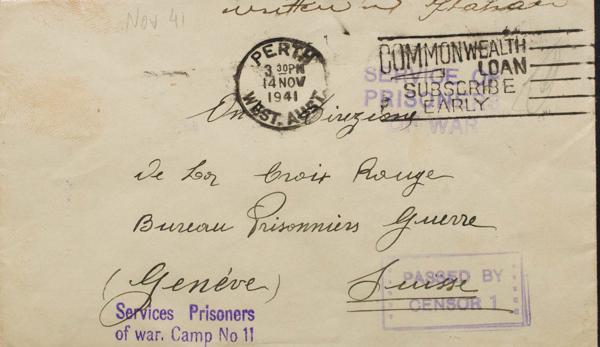 Nov 41
written in Italian
PERTH
3 30PM
14 NOV
1941
WEST. AUST.
COMMONWEALTH
LOAN
SUBSCRIBE
EARLY
SERVICE OF
PRISONERS
OF WAR
On Direzione
de la Croix Rouge
Bureau Prisonniers Guerre
(Genéve) Suisse
PASSED BY
CENSOR 1
Services Prisoners
of war. Camp No 11